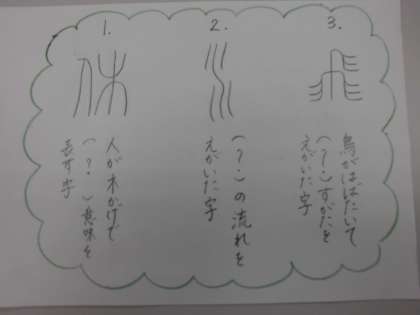 1.
人が木かげで
(?)意味を
表す字
2.
(?)の流れを
えがいた字
3.
鳥がはばたいて
(?)すがたを
えがいた字